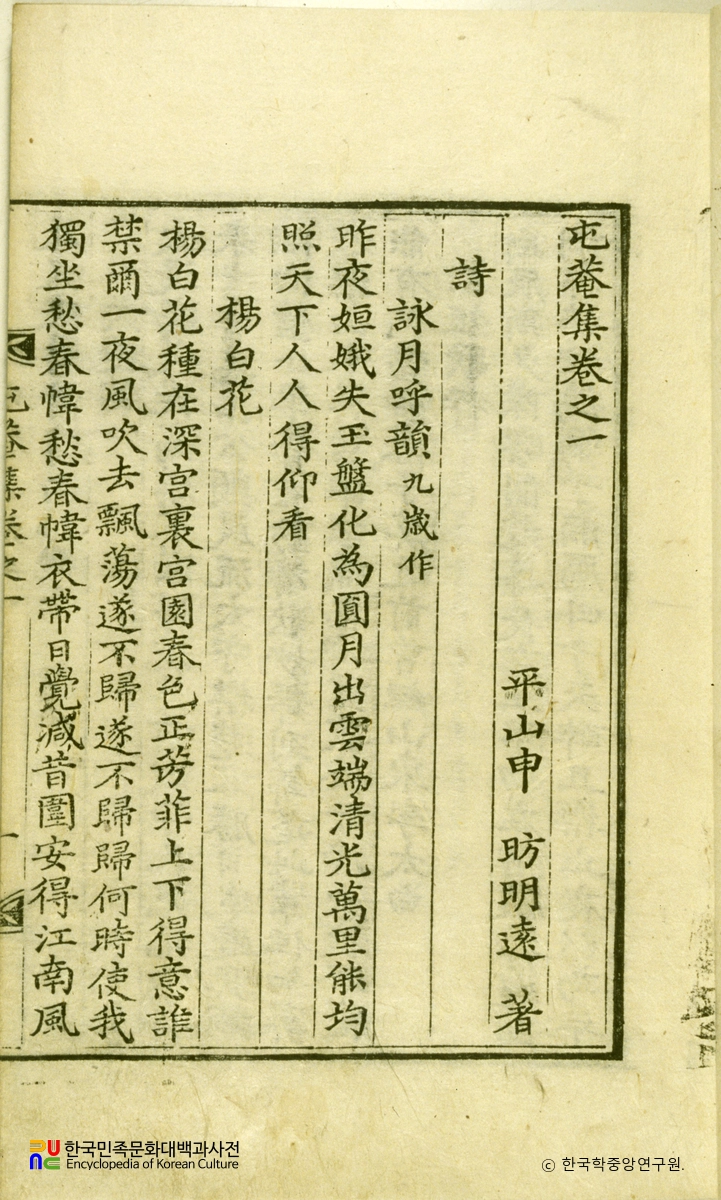 屯菴集卷之一
平山申 昉明遠 著
詩
詠月呼韻 九歲作
昨夜姮娥失玉盤化為圓月出雲端清光萬里能均
照天下人人得仰看
楊白花
楊白花種在深宮裏宮園春色正芳菲上下得意誰
禁爾一夜風吹去飄蕩遂不歸遂不歸歸何時使我
獨坐愁春幃愁春幃衣帶日覺減昔圍安得江南風
屯菴集卷之一
一
한국민족문화대백과사전
Encyclopedia of Korean Culture
ⓒ 한국학중앙연구원.